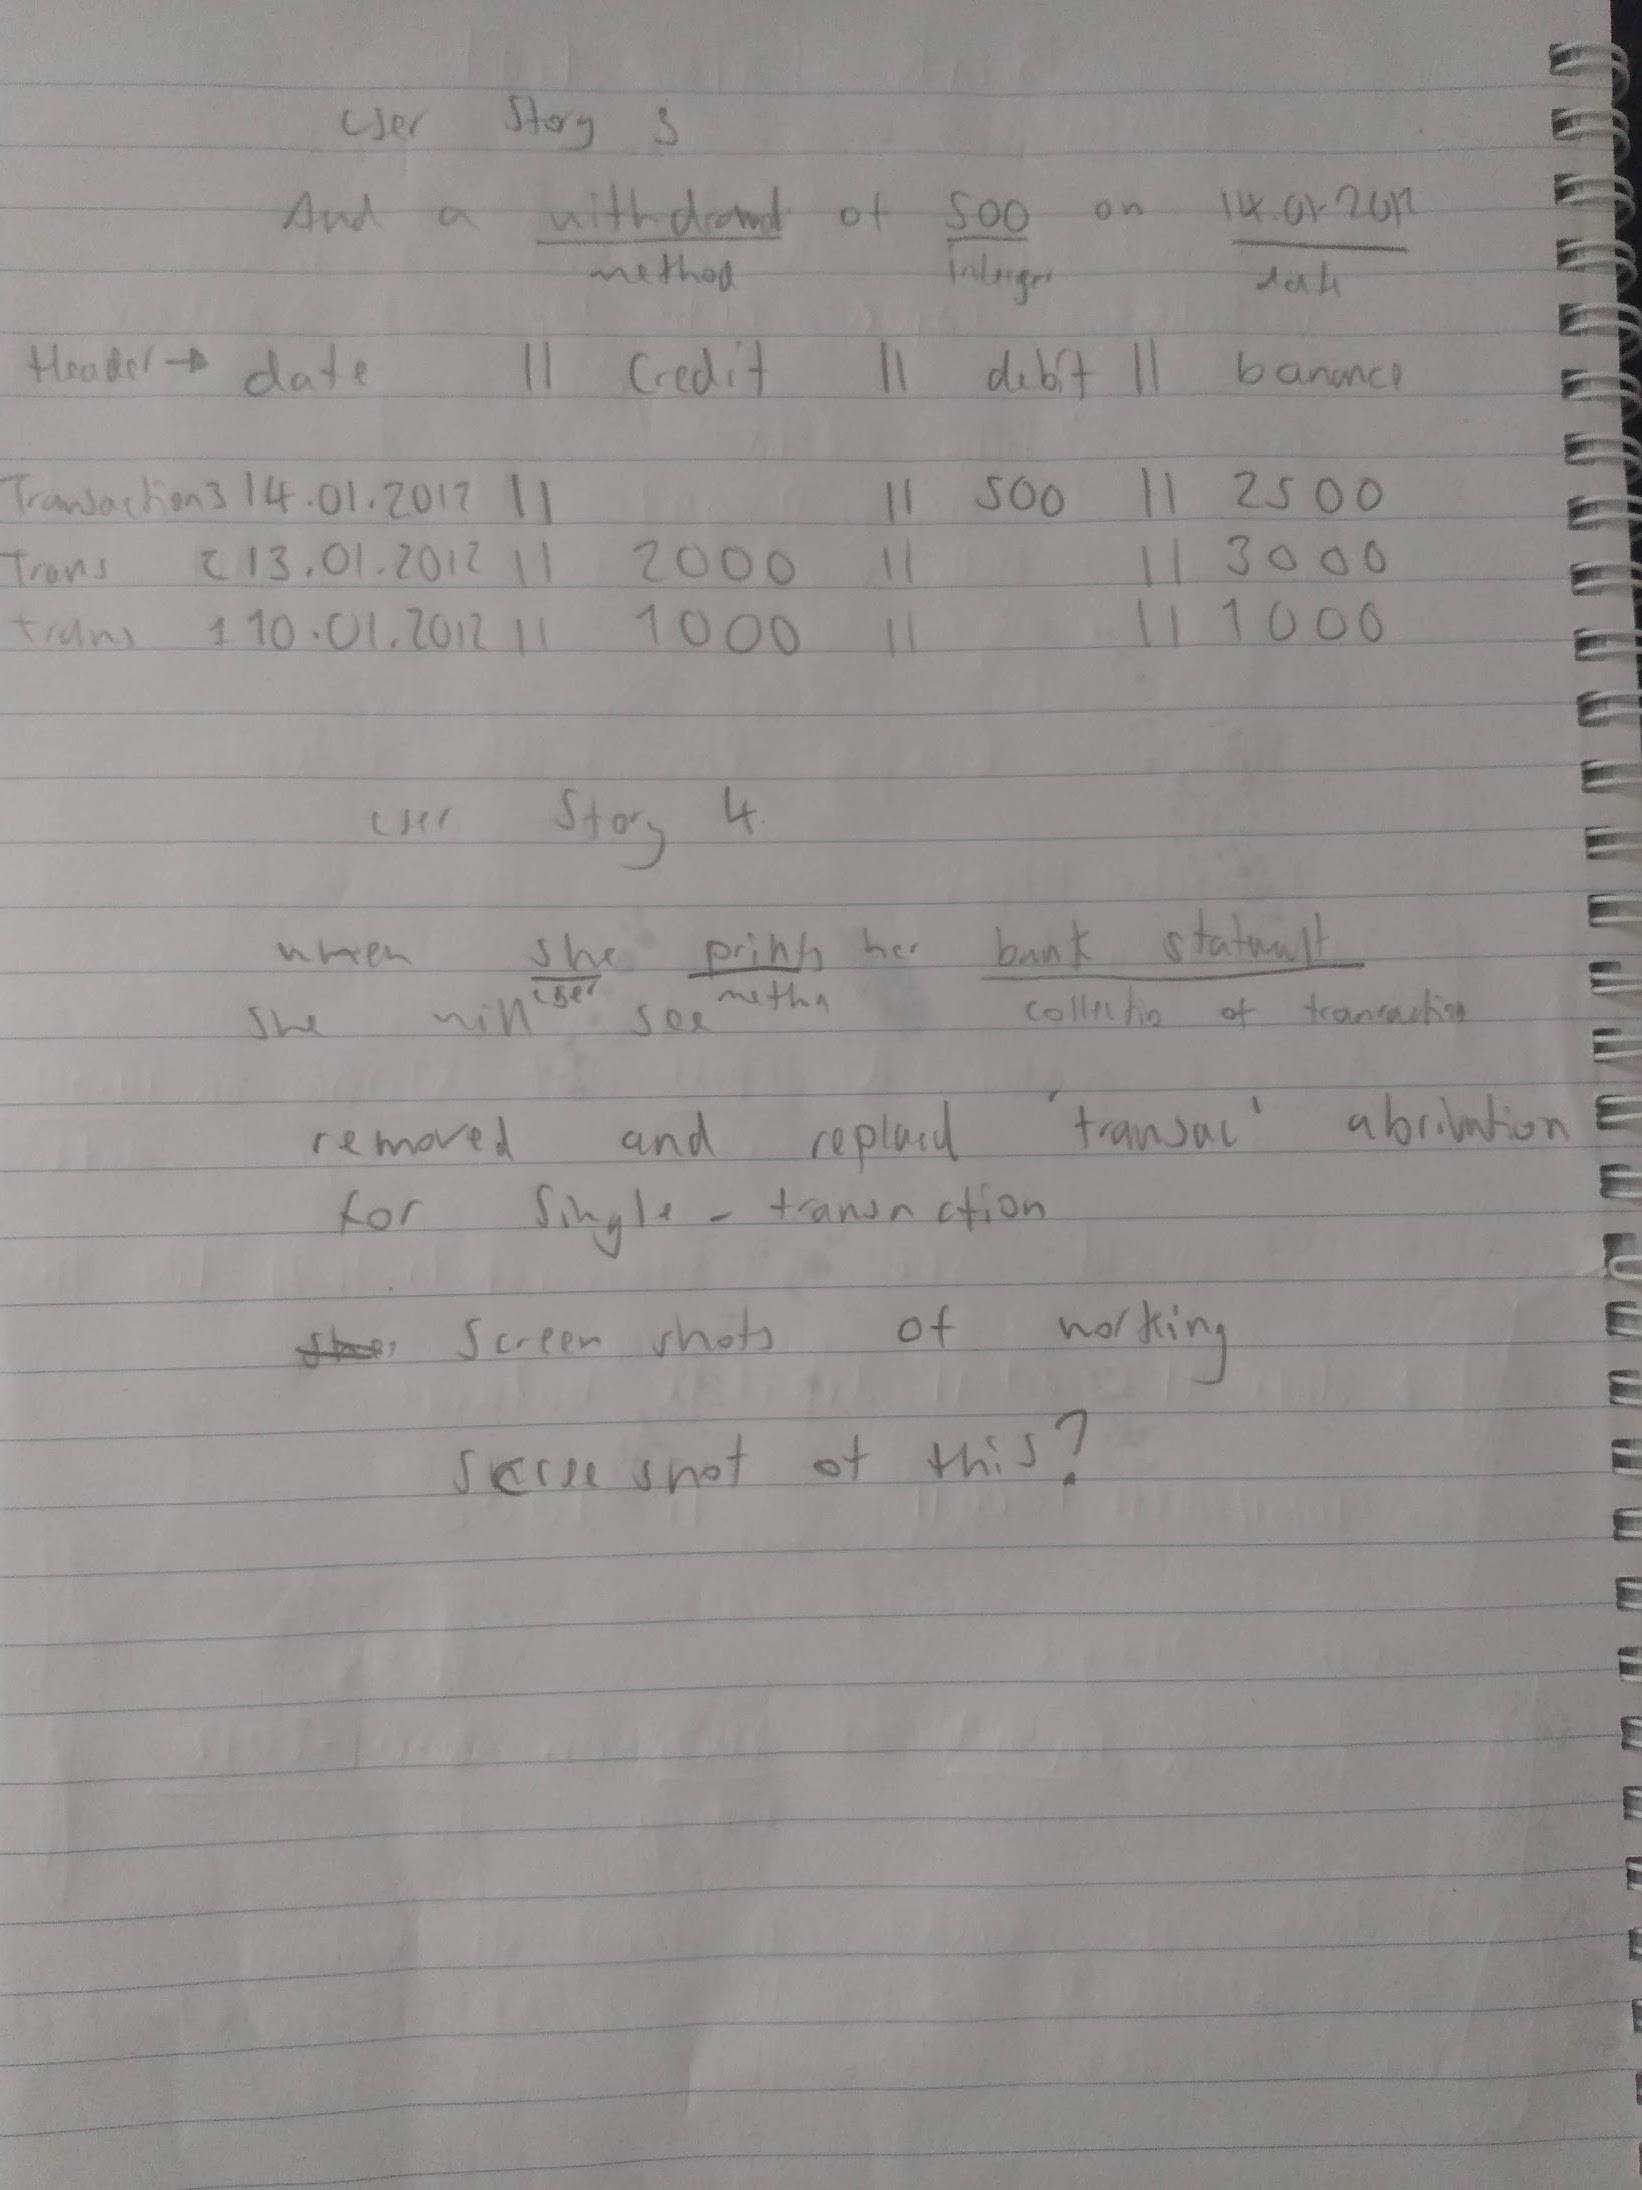 user Story 3
And a withdrawal of 500 on 14.01.2012
method integer date
Header → date || Credit || debit || banance
Transaction 3 14.01.2012 || || 500 || 2500
Trans 2 13.01.2012 || 2000 || || 3000
trans 1 10.01.2012 || 1000 || || 1000
user Story 4.
when she prints her bank statement
user method collection of transaction
she will see
removed and replaced 'transac'
for Single - transaction
Screen shots of working
shot of this?